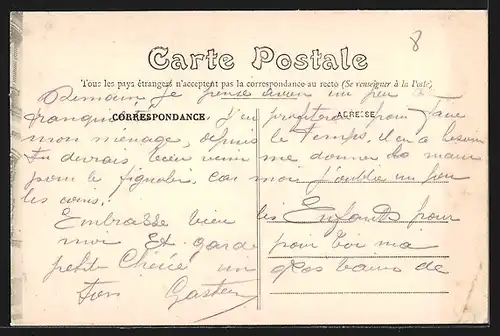 8
Carte Postale
Tous les pays étrangers n'acceptent pas la correspondance au recto (Se renseigner à la Poste)
Demain, je pense avoir un peu de
tranquilité CORRESPONDANCE J'en profiterai pour faire ADRESSE
mon ménage, depuis le temps. Il en a besoin
Tu devrais bien venir me donner la main
pour le fignoler, car moi j'oublie un peu
les coins.
Embrasse bien les Enfants pour
moi Et garde pour toi ma
petite Chérie un gros baiser de
ton Gaston